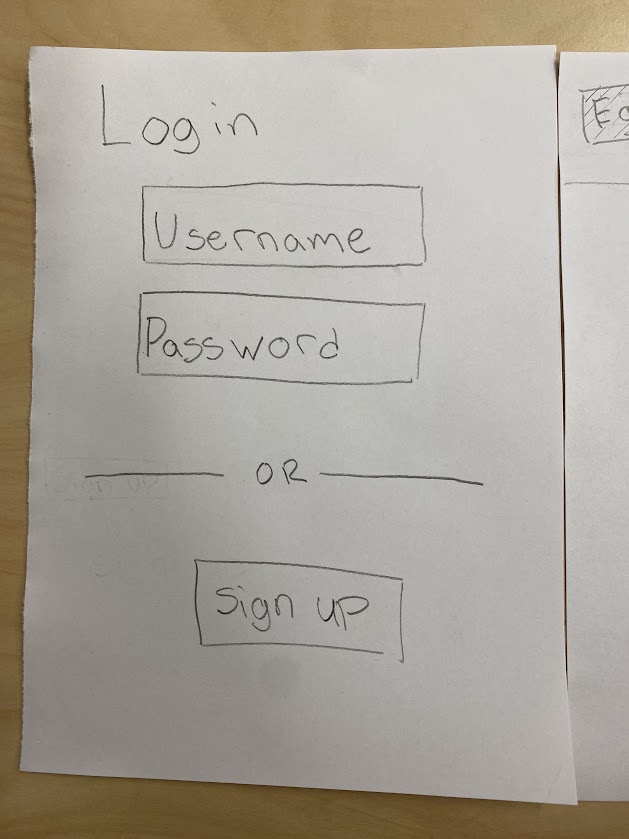 Login
Username
Password
OR
Sign up